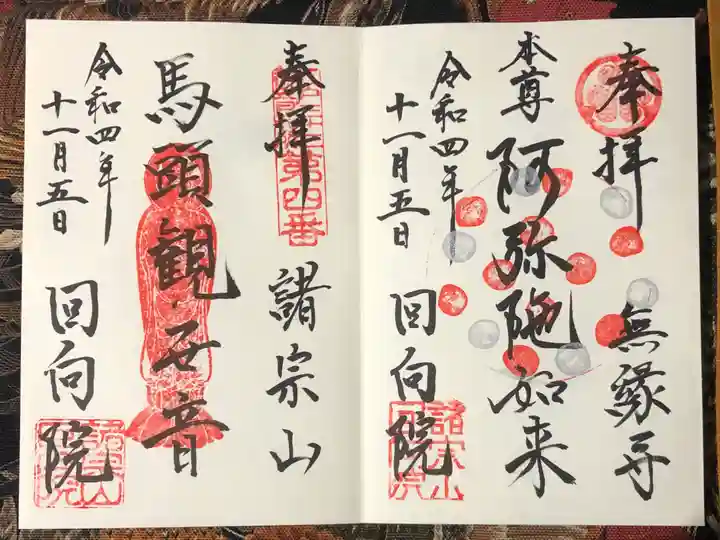 奉拝
無縁寺
本尊
阿弥陀如来
令和四年
十一月五日
回向院
諸宗山
奉拝
第四番
諸宗山
馬頭観世音
令和四年
十一月五日
回向院